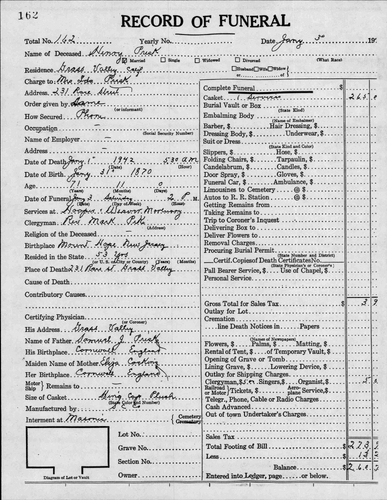 162
RECORD OF FUNERAL
Total No. 162 Yearly No. Date Jany 5 19
Name of Deceased Henry Prisk
Married Single Widowed Divorced (What Race)
Residence Grass Valley, Calif
Charge to Mrs. Ida Prisk
Address 231 Race Street
Order given by Same (or informant)
How Secured Phon
Occupation - (Social Security Number)
Name of Employer -
Address -
Date of Death Jany 1st 1942 5:30 A.M.
Date of Birth Jany 31st 1870
Age 71 11 0
(Years) (Months) (Days)
Date of Funeral Jany 3 Saturday 2 P.M.
Services at Hooper & Weaver Mortuary
Clergyman Rev. Mark Pike
(Address)
Religion of the Deceased
Birthplace Mount Hope New Jersey
Resided in the State 53 yrs
(or U. S. or City or County) (Years)
Place of Death 231 Race st Grass Valley
Cause of Death
Contributory Causes
Certifying Physician
(or Coroner)
His Address Grass Valley
Name of Father Samuel J. Prisk
His Birthplace Cornwall England
Maiden Name of Mother Eliza
Her Birthplace Cornwall England
Motor Ship Remains to -
Size of Casket Plush
(State Color and Number)
Manufactured by
Interment at Masonic Cemetery Crematory
Lot No.
Grave No.
Section No.
Owner
Diagram of Lot or Vault
Complete Funeral $
Casket & Services 265.0
Burial Vault or Box
(State Kind)
Embalming Body
(Name of Embalmer)
Barber, $ Hair Dressing, $
Dressing Body, $ Underwear, $
Suit or Dress
(State Kind and Color)
Slippers, $ Hose, $
Folding Chairs, $ Tarpaulin, $
Candelabrum, $ Candles, $
Door Spray, $ Gloves, $
Funeral Car, $ Ambulance, $
Limousines to Cemetery @ $
Autos to R. R. Station @ $
Getting Remains from
Taking Remains to
Trip to Coroner's Inquest
Delivering Box to
Deliver Flowers to
Removal Charges
Procuring Burial Permit
(State Number and District)
Certif. Copies of Death Certificate No.
(State Physician's or Coroner's)
Pall Bearer Service, $ Use of Chapel, $
Personal Service
Gross Total for Sales Tax $
Outlay for Lot
Cremation
line Death Notices in Papers
(Names of Newspapers)
Flowers, $ Palms, $ Matting, $
Rental of Tent, $ of Temporary Vault, $
Opening of Grave or Tomb
Lining Grave, $ Lowering Device, $
Outlay for Shipping Charges
Clergyman, $ 5.00 Singers, $ Organist, $ 5.0
Railroad Tickets, $ Motor Service, $ Aeroplane Service, $
Teleg., Phone, Cable or Radio Charges
Cash Advanced
Out of town Undertaker's Charges
Sales Tax $
Total Footing of Bill $ 273
Less $
Balance $ 260
Entered into Ledger, page or below.